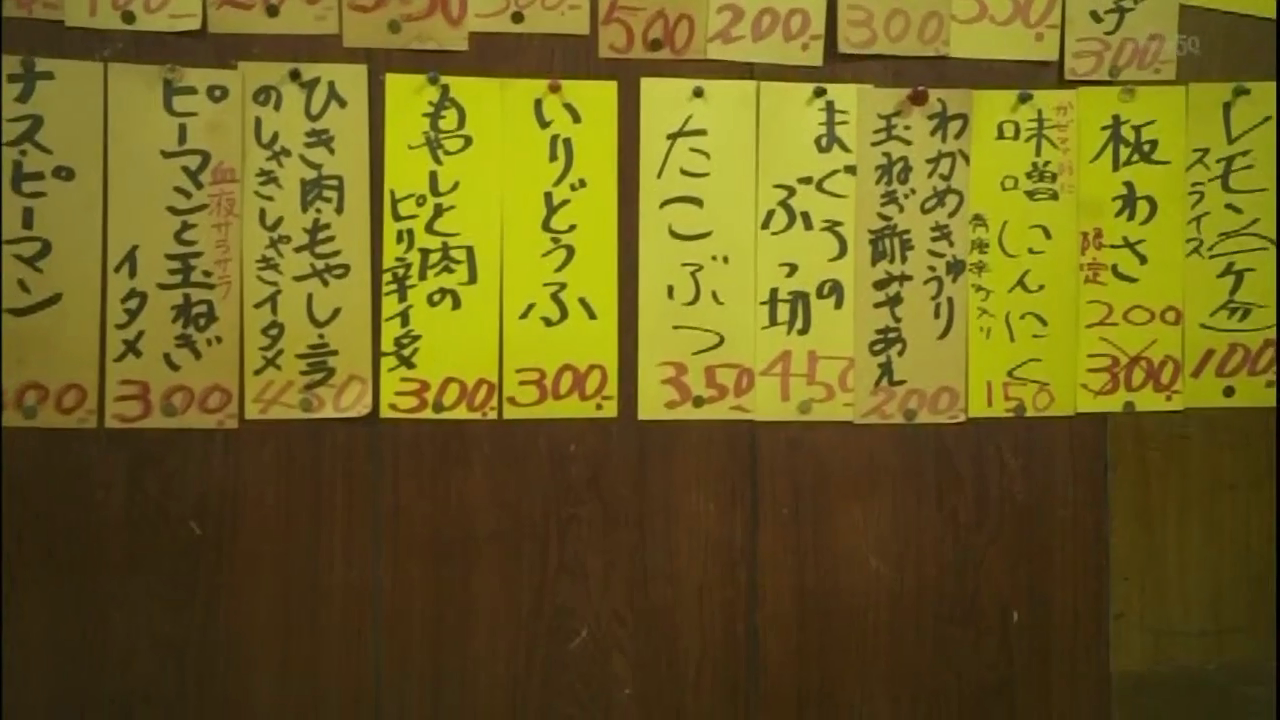 500
200
300
350
げ
300
レモン(一ケ分)
スライス
100
板わさ
限定
200
300
味噌にんにく
青唐辛子入り
150
わかめきゅうり
玉ねぎ酢みそあえ
200
まぐろの
ぶっ切
450
たこぶつ
350
いりどうふ
300
もやしと肉の
ピリ辛イタメ
300
ひき肉・もやし・ニラ
のしゃきしゃきイタメ
450
血液サラサラ
ピーマンと玉ねぎ
イタメ
300
ナス・ピーマン
00